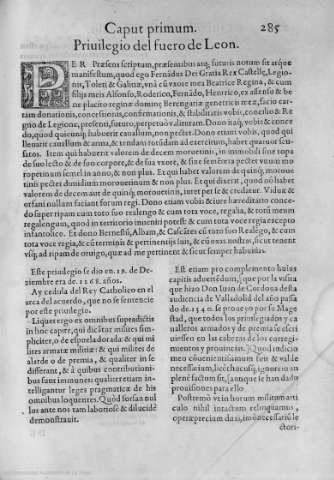 Caput primum. 285
Priuilegio del fuero de Leon.
PER Præsens scriptum, præsentibus atq; futuris notum sit atque
manifestum, quod ego Fernãdus Dei Gratia Rex Castellę, Legio-
nis, Toleti & Galitiæ, vnà cũ vxore mea Beatrice Regina, & cum
filijs meis Alfonso, Federico, Fernãdo, Henrico, ex assensu & be
ne placito reginæ dominę Berengariæ genetricis meæ, facio car-
tam donationis, concessionis, confirmationis, & stabilitatis vobis, concilio & Re
gno de Legione, presenti, futuro, perpetuò
cedo, quod quicunq; habuerit cauallum, non pectet. Dono etiam vobis, quod qui
tenuerit cauallum & arma, & tendam rotundam ad exercitum, habet quatuor scu-
satos. Item qui habuerit valorem de decem morouetinis, in immobili siue ropa
de suo lecto & de suo corpore, & de sua vxore, & sine sementera pectet vnum mo
rouetinum semel in anno, & non plus. Et qui habet valorem de quinq; moroue
tinis pectet dimidium morouetinum & non plus. Et qui dixerit, quod nõ habet
valorem de decem aut de quinq; morouetinis, iuret per se & credatur. Viduæ &
orfani nullam faciant forum regi. Dono etiam vobis & iure hæreditario conce-
do super ripam cum toto suo realengo & cum tota voce, regalia, & totũ meum
regalengum, quod in territorio inueniri potest & cum tota voce regis excepto
infantatico. Et dono Bernesga, Albam, & Cascãtes cũ toto suo Realẽgo, & cum
tota voce regia, & cũ terminis & pertinentijs suis, & cũ oñas nostras, sicut tenent
vsq; ad ripam de ornigo, quæ ad me pertinent & sicut semper habuistis.
Este priuilegio se dio en. 19. de De-
ziembre era de. 1268. años.
Ay cedula del Rey Catholico en el
arca del acuerdo, que no se sentencie
por este priuilegio.
Liquet ergo ex omnibus supradictis
in hoc capite, qui dicãtur milites sim-
pliciter, o de espuela dorada: & qui mi
lites armatæ militiæ: & qui milites de
alarde o de premia, & qualiter in se
differant, & à quibus contributioni-
bus sunt immunes: qualiter etiam in-
telligantur leges pragmaticæ de his
omnibus loquentes. Quòd forsan nul
lus ante nos tam laboriosè & dilucidè
demonstrauit.
Est etiam pro complemento huius
capitis aduertẽdum, que por la visita
que hizo Don Iuan de Cordoua desta
audiencia de Valladolid del año passa
do de. 1542. se proueyo por su Mage
stad, que todos los priuilegiados y ca
ualleros armados y de premia se escri
uiessen en las cabeças de los corregi-
mientos y prouincias. Quod iudicio
meo cõuenientissimum fuit & valdè
necessarium, licèt hucusq; ignorẽ an in
plenè factum sit, aunque se han dado
prouisiones para ello
Postremò verò in horum militum ar-
calo nihil intactum relinquamus,
operæpretium duxi, immo necessariũ le
ctori-